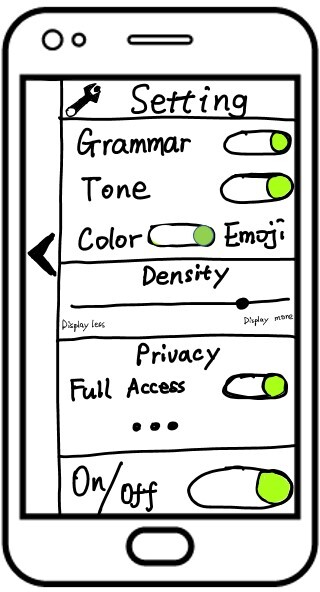 Setting
Grammar
Tone
Color Emoji
Density
Display less Display more
Privacy
Full Access
On/Off